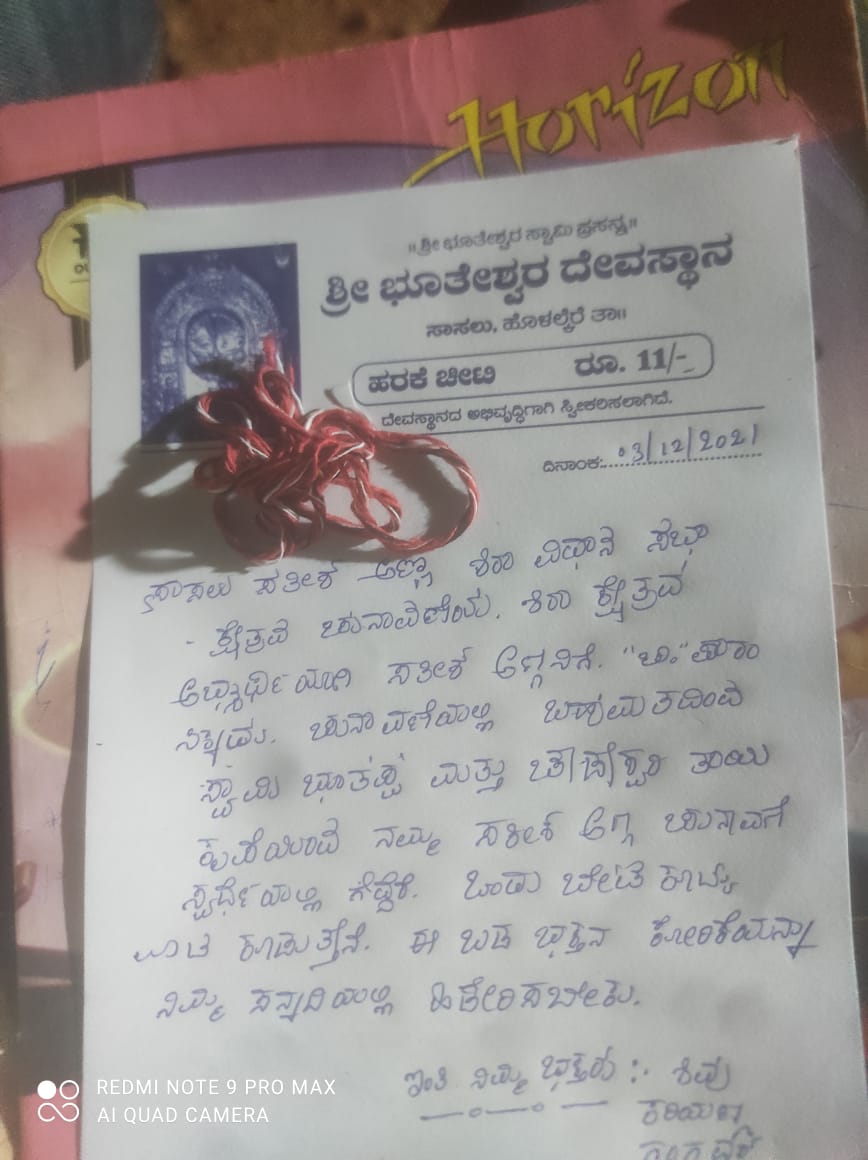 Horizon
॥ಶ್ರೀ ಭೂತೇಶ್ವರ ಸ್ವಾಮಿ ಪ್ರಸನ್ನ॥
ಶ್ರೀ ಭೂತೇಶ್ವರ ದೇವಸ್ಥಾನ
ಸಾಸಲು, ಹೊಳಲ್ಕೆರೆ ತಾ॥
ಹರಕೆ ಚೀಟಿ ರೂ. 11/-
ದೇವಸ್ಥಾನದ ಅಭಿವೃದ್ಧಿಗಾಗಿ ಸ್ವೀಕರಿಸಲಾಗಿದೆ.
ದಿನಾಂಕ: 03/12/2021
ಸಾಸಲು ಸತೀಶ ಅಣ್ಣ ಶಿರಾ ವಿಧಾನ ಸಭಾ
ಕ್ಷೇತ್ರದ ಚುನಾವಣೆಯ. ಶಿರಾ ಕ್ಷೇತ್ರದ
ಅಭ್ಯರ್ಥಿಯಾಗಿ ಸತೀಶ ಅಣ್ಣನಿಗೆ.
ಚುನಾವಣೆಯಲ್ಲಿ ಬಹುಮತದಿಂದ
ಸ್ವಾಮಿ ಭೂತಪ್ಪ ಮತ್ತು ಚೌಡೇಶ್ವರಿ ತಾಯಿ
ನಮ್ಮ ಸತೀಶ ಅಣ್ಣ ಚುನಾವಣೆ
ಸ್ಪರ್ಧೆಯಲ್ಲಿ ಗೆದ್ದರೆ. ಒಂದು
ಈ ಬಡ ಭಕ್ತನ ಕೋರಿಕೆಯನ್ನು
ನಿಮ್ಮ ಸನ್ನದಿಯಲ್ಲಿ
ಇಂತಿ ನಿಮ್ಮ ಭಕ್ತರು :- ಶಿವು
ಕರಿಯಣ್ಣ
REDMI NOTE 9 PRO MAX
AI QUAD CAMERA